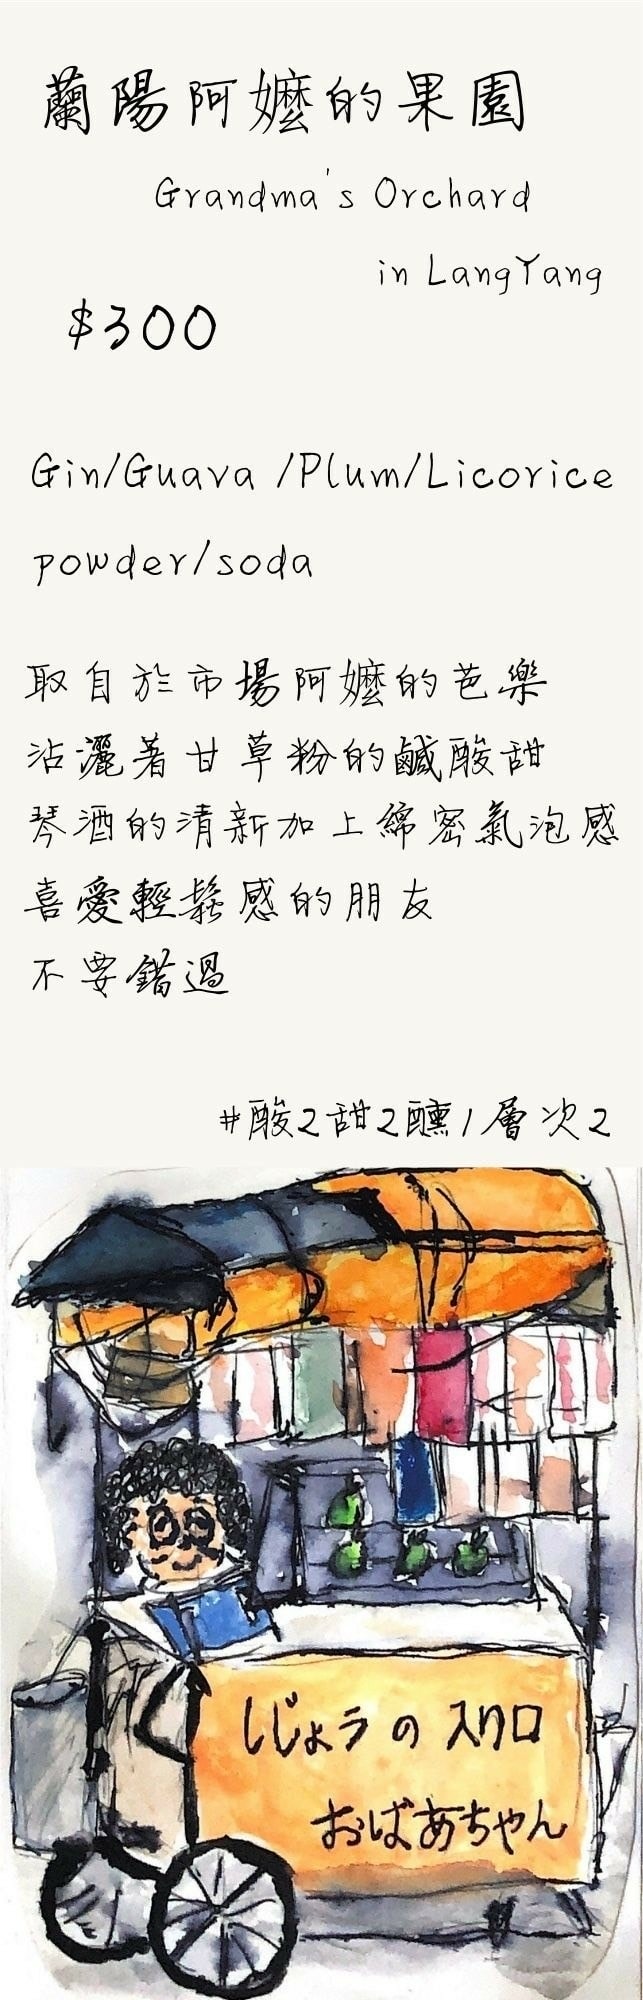 蘭陽阿嬤的果園
Grandma's Orchard
in LangYang
$300
Gin/Guava /Plum/Licorice
powder/soda
取自於市場阿嬤的芭樂
沾灑著甘草粉的鹹酸甜
琴酒的清新加上綿密氣泡感
喜愛輕鬆感的朋友
不要錯過
#酸2甜2醺1層次2
しじょうの入り口
おばあちゃん